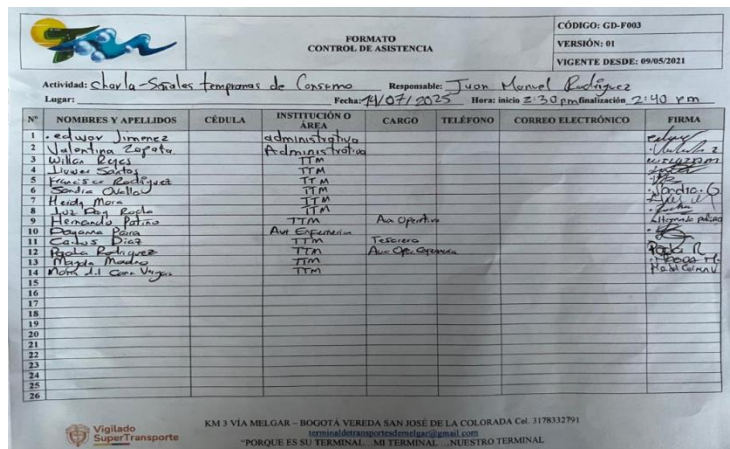 FORMATO
CONTROL DE ASISTENCIA
CÓDIGO: GD-F003
VERSIÓN: 01
VIGENTE DESDE: 09/05/2021
Actividad: Charla-Señales tempranas de Consumo Responsable: Juan Manuel Rodriguez
Lugar: Fecha: 14/07/2025 Hora: inicio 2:30 pm finalización 2:40 pm
N° NOMBRES Y APELLIDOS CÉDULA INSTITUCIÓN O ÁREA CARGO TELÉFONO CORREO ELECTRÓNICO FIRMA
1 edwar Jimenez administrativa
2 Valentina Zapata Administrativa
3 Reyes TTM
4 Santos TTM
5 Francisco Rodriguez TTM
6 Sandra TTM Sandra
7 Heidy Mora TTM
8 Luz TTM
9 Hernando Patiño TTM Hernando Patiño
10 Dayanna Parra Aux Enfermeria
11 Carlos Diaz TTM Tesorero
12 Paola Rodriguez TTM Paola R
13 Magda TTM
14 TTM
15
16
17
18
19
20
21
22
23
24
25
26
Vigilado
SuperTransporte
KM 3 VÍA MELGAR – BOGOTÁ VEREDA SAN JOSÉ DE LA COLORADA Cel. 3178332791
terminaldetransportesdemelgar@gmail.com
"PORQUE ES SU TERMINAL…MI TERMINAL …NUESTRO TERMINAL